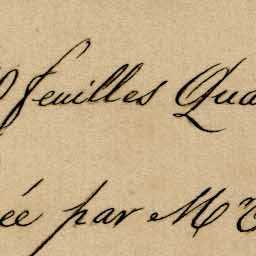 feuilles Qua
ée par M